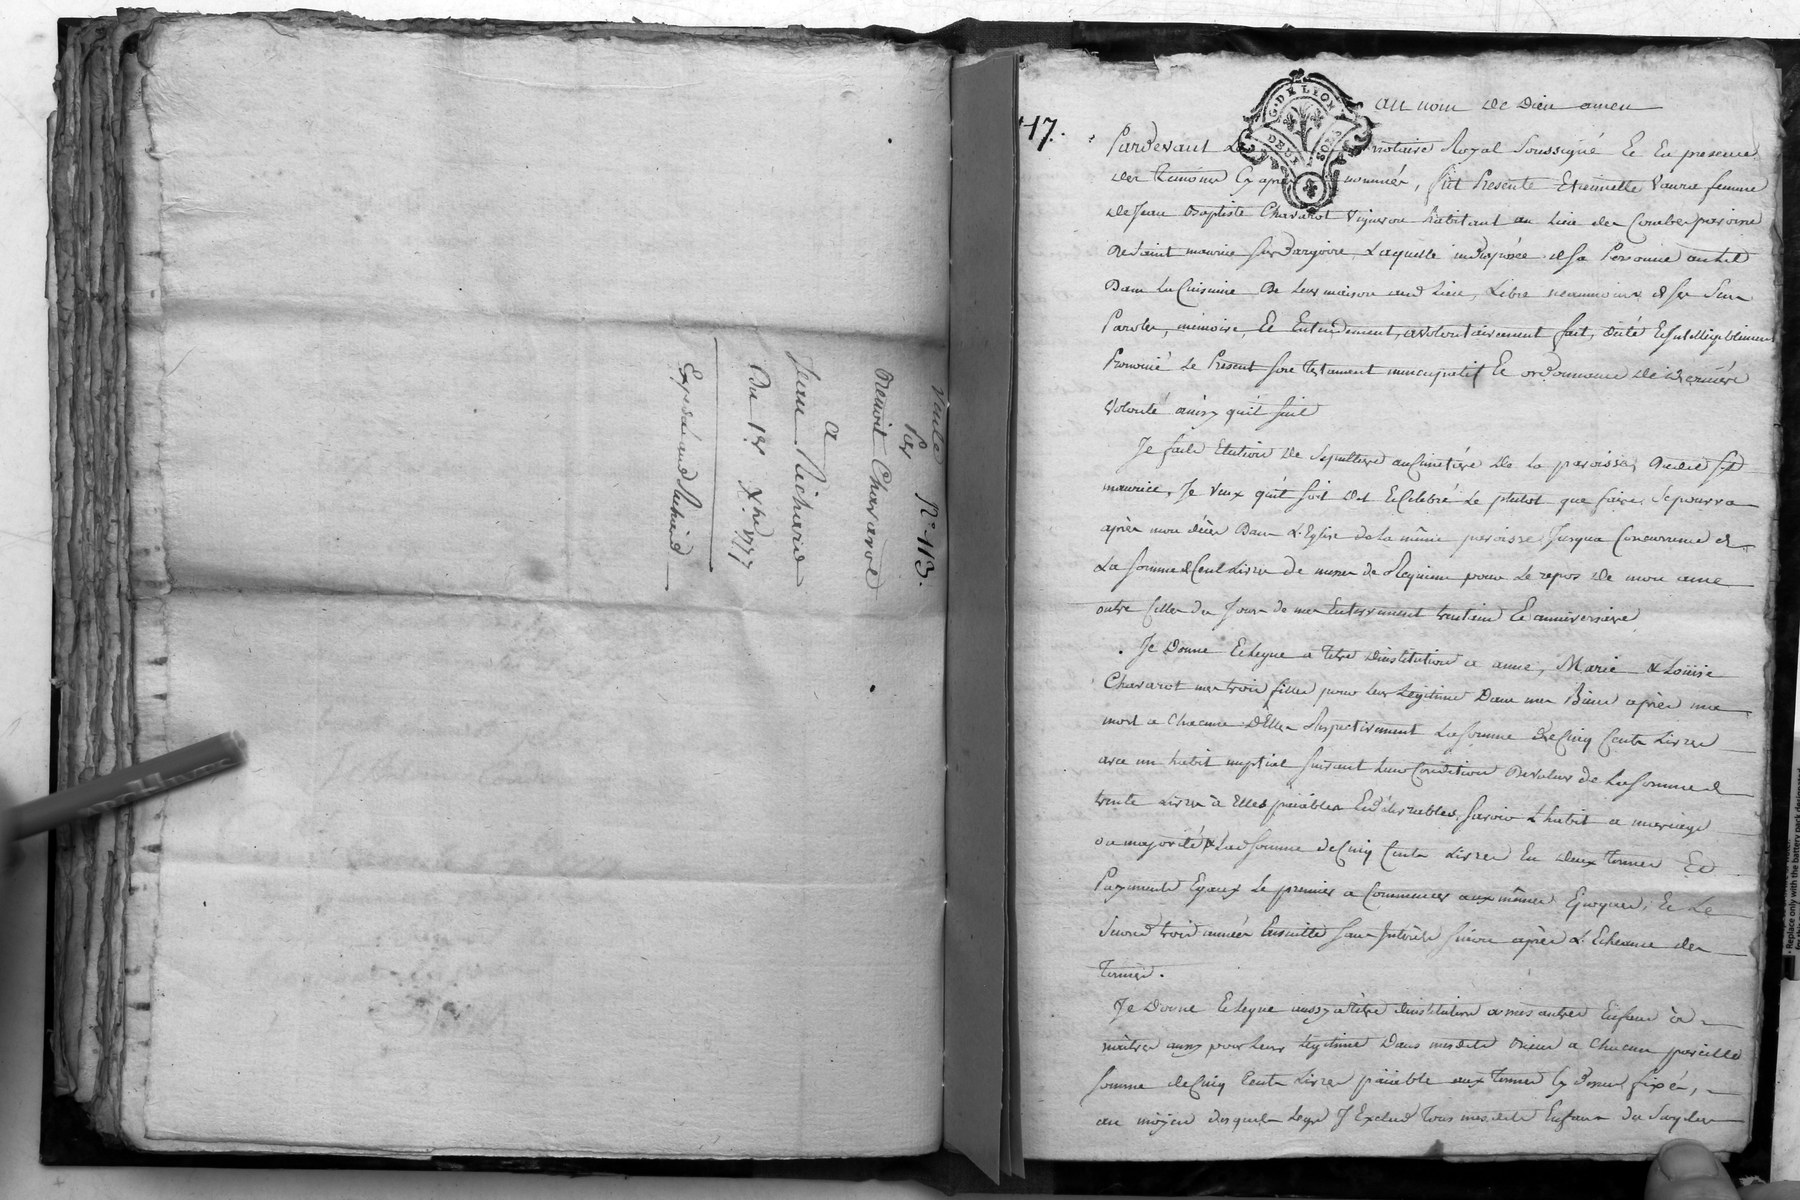 Vente N° 113.
Par
Benoit Chavarot
a
Jean Richard
Du 1er Xbre 1777
Expédié aud Richard
117.
G. DE LYON
DEUX SOLS
au nom de Dieu amen
Pardevant Le notaire Royal Soussigné Et En presence
des Temoins Cy apres nommés, fut Presente Etiennette Vaurie femme
de Jean Baptiste Chavarot Vigneron habitant au Lieu des Combes paroisse
De Saint maurice sur Dargoire, Laquelle indisposée de sa Personne au lit
Dans La Cuisine De leur maison aud Lieu, Libre neammoins de ses Sens
Parole, mémoire Et Entendement, a volontairement fait, dicté Et Intelligiblement
Prononcé Le Present son testament nuncupatif Et ordonnance de derniere
Volonté ainsy qu'il suit
Je fais Election de Sepulture au Cimetiére de la paroisse dudit St
maurice, Je veux qu'il soit dit Et Celebré Le plutot que faire Se pourra
après mon décès Dans L'Eglise de la même paroisse Jusqua Concurrence de
La somme de Cent Livres de messes de Requiem pour Le repos de mon ame
outre celles du Jour de mon Enterrement trentain Et anniversaire
Je Donne Et Legue a titre d'institution a anne, Marie & Loüise
Chavarot mes trois filles pour leur Légitime Dans mes Biens après ma
mort a chacune D'Elles Respectivement La somme de Cinq Cents Livres
avec un habit nuptial suivant Leur Condition De valeur de La somme de
trente Livres à Elles païables Et délivrables, Savoir L'habit a mariage
ou majorité & Lad somme de Cinq Cents Livres En deux termes Et
Payements Egaux Le premier a Commencer aux mêmes Epoques, Et Le
Second trois années Ensuitte sans Interêts sinon après L'Echeance des
termes.
Je Donne Et Legue aussy a titre d'institution a mes autres Enfans à
naitre aussy pour Leur Légitime Dans mesdits Biens a Chacun pareille
somme de Cinq Cents Livres païable aux termes Cy Dessus fixés,
au moyen desquels Legs J'Exclus tous mesdits Enfans du Surplus